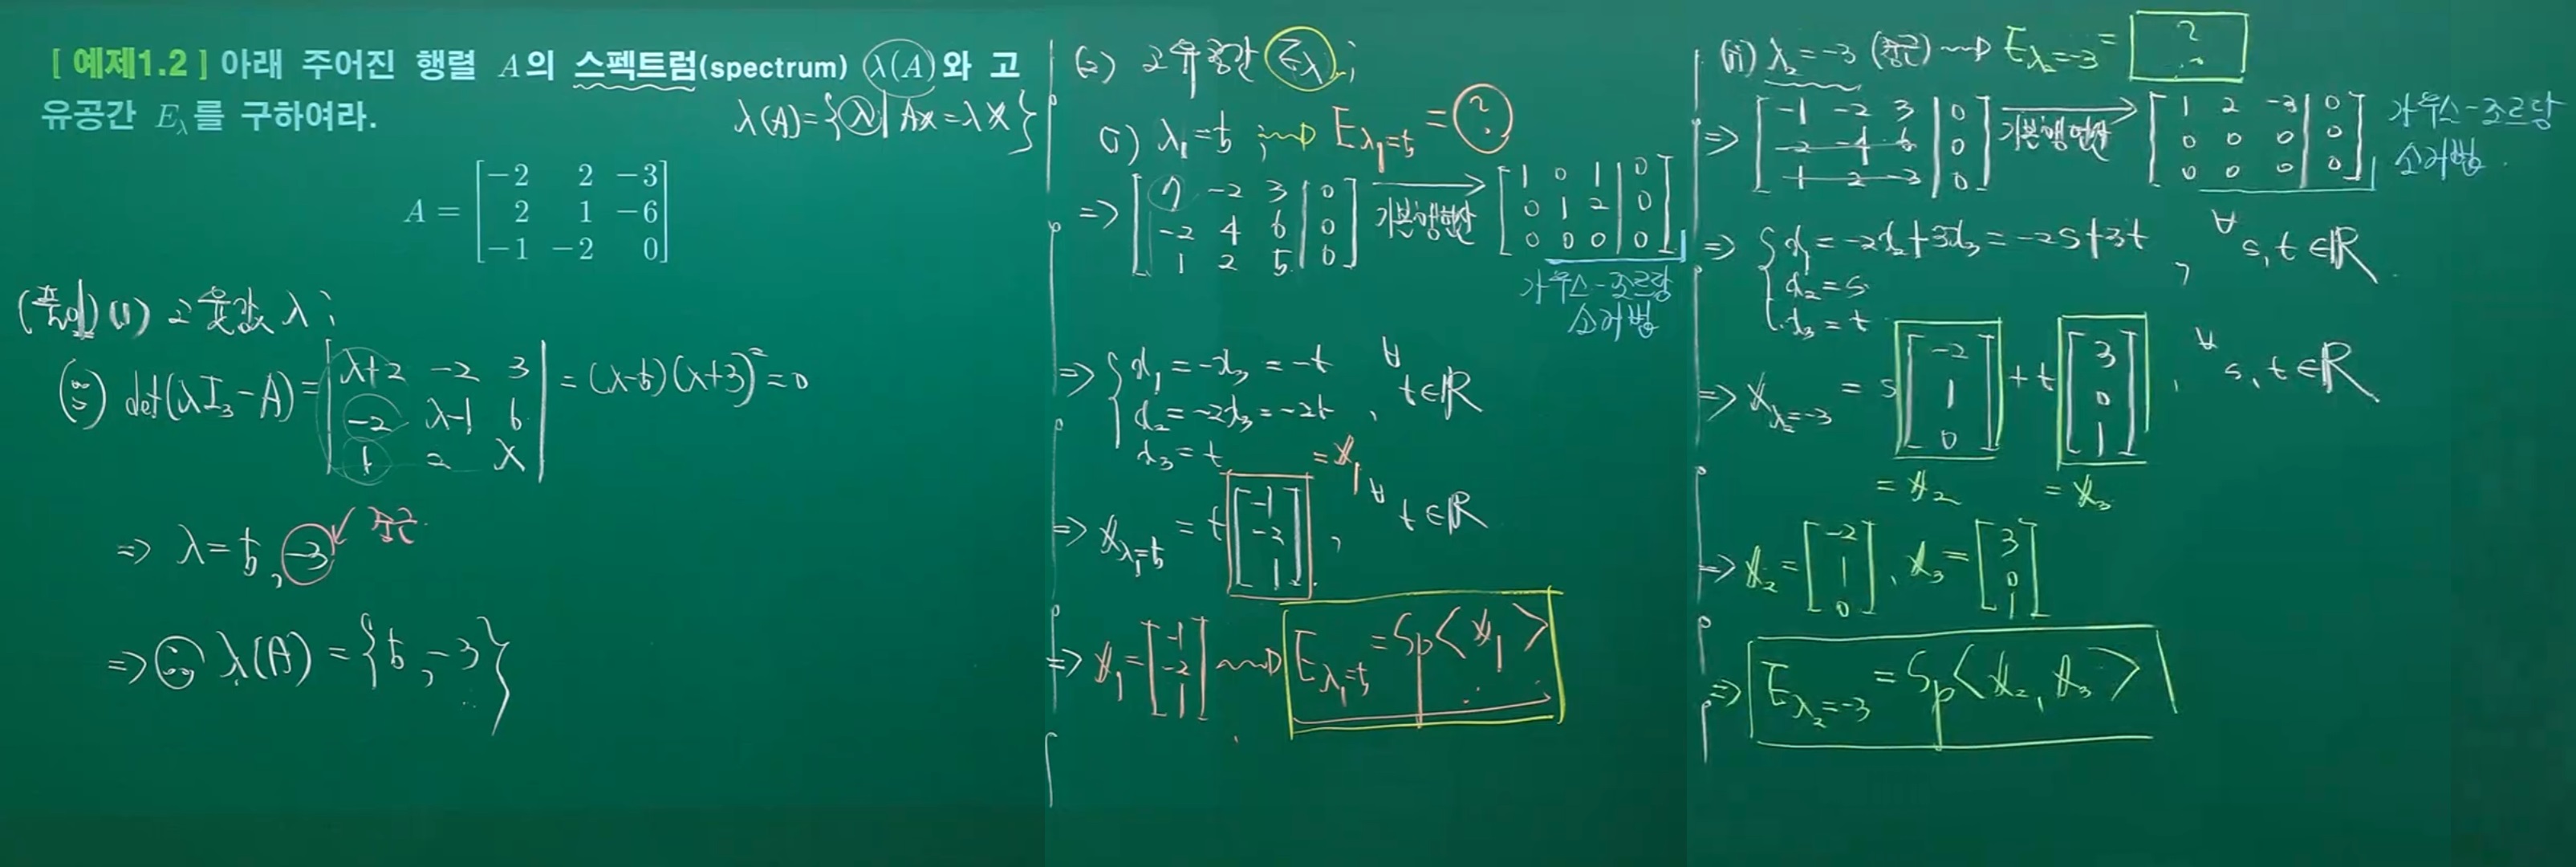 [ 예제1.2 ] 아래 주어진 행렬 A의 스펙트럼(spectrum) λ(A)와 고
유공간 E_λ를 구하여라.
λ(A)={λ| Ax=λx}
A = [−2 2 −3
2 1 −6
−1 −2 0]
(풀이) (1) 고윳값 λ ;
(∵) det(λI₃−A) = |λ+2 −2 3
−2 λ−1 6
1 2 λ| = (λ−5)(λ+3)² = 0
⇒ λ=5, −3 ↙ 중근
⇒ ∴ λ(A) = {5, −3}
(2) 고유공간 E_λ ;
(i) λ₁=5 ; E_λ₁=5 = ?
⇒ [7 −2 3 | 0
−2 4 6 | 0
1 2 5 | 0] → 기본행연산 [1 0 1 | 0
0 1 2 | 0
0 0 0 | 0]
가우스-조르당
소거법
⇒ { x₁ = −x₃ = −t
x₂ = −2x₃ = −2t , ∀t∈ℝ
x₃ = t
⇒ x_λ₁=5 = t [−1
−2
1] = x₁ , ∀t∈ℝ
⇒ x₁ = [−1
−2
1] E_λ₁=5 = Sp<x₁>
(ii) λ₂=−3 (중근) E_λ₂=−3 = ?
⇒ [−1 −2 3 | 0
−2 −4 6 | 0
1 2 −3 | 0] → 기본행연산 [1 2 −3 | 0
0 0 0 | 0
0 0 0 | 0] 가우스-조르당
소거법.
⇒ { x₁ = −2x₂+3x₃ = −2s+3t , ∀s,t∈ℝ
x₂ = s
x₃ = t
⇒ x_λ₂=−3 = s [−2
1
0] + t [3
0
1] , ∀s,t∈ℝ
= x₂ = x₃
⇒ x₂ = [−2
1
0] , x₃ = [3
0
1]
⇒ E_λ₂=−3 = Sp<x₂, x₃>